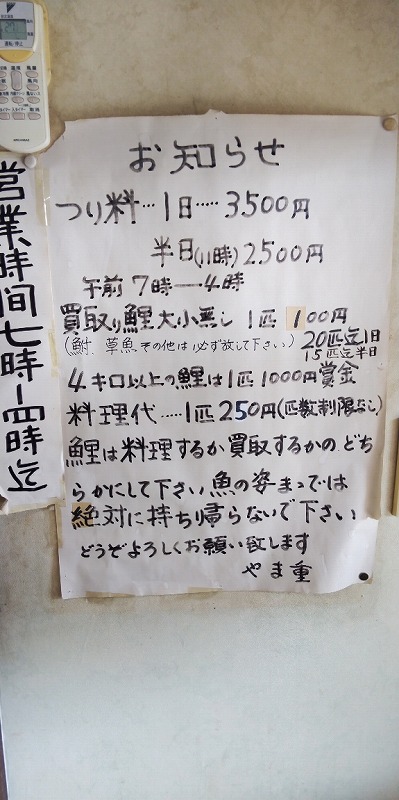 お知らせ
つり料…1日……3500円
半日(11時)2500円
午前7時―4時
買取り鯉大小無し 1匹 100円
(鮒、草魚その他は必ず放して下さい)
20匹迄1日
15匹迄半日
4キロ以上の鯉は1匹1000円賞金
料理代……1匹250円(匹数制限なし)
鯉は料理するか買取するかのどち
らかにして下さい魚の姿まゝでは
絶対に持ち帰らないで下さい
どうぞよろしくお願い致します
やま重
営業時間七時〜四時迄
運転/停止